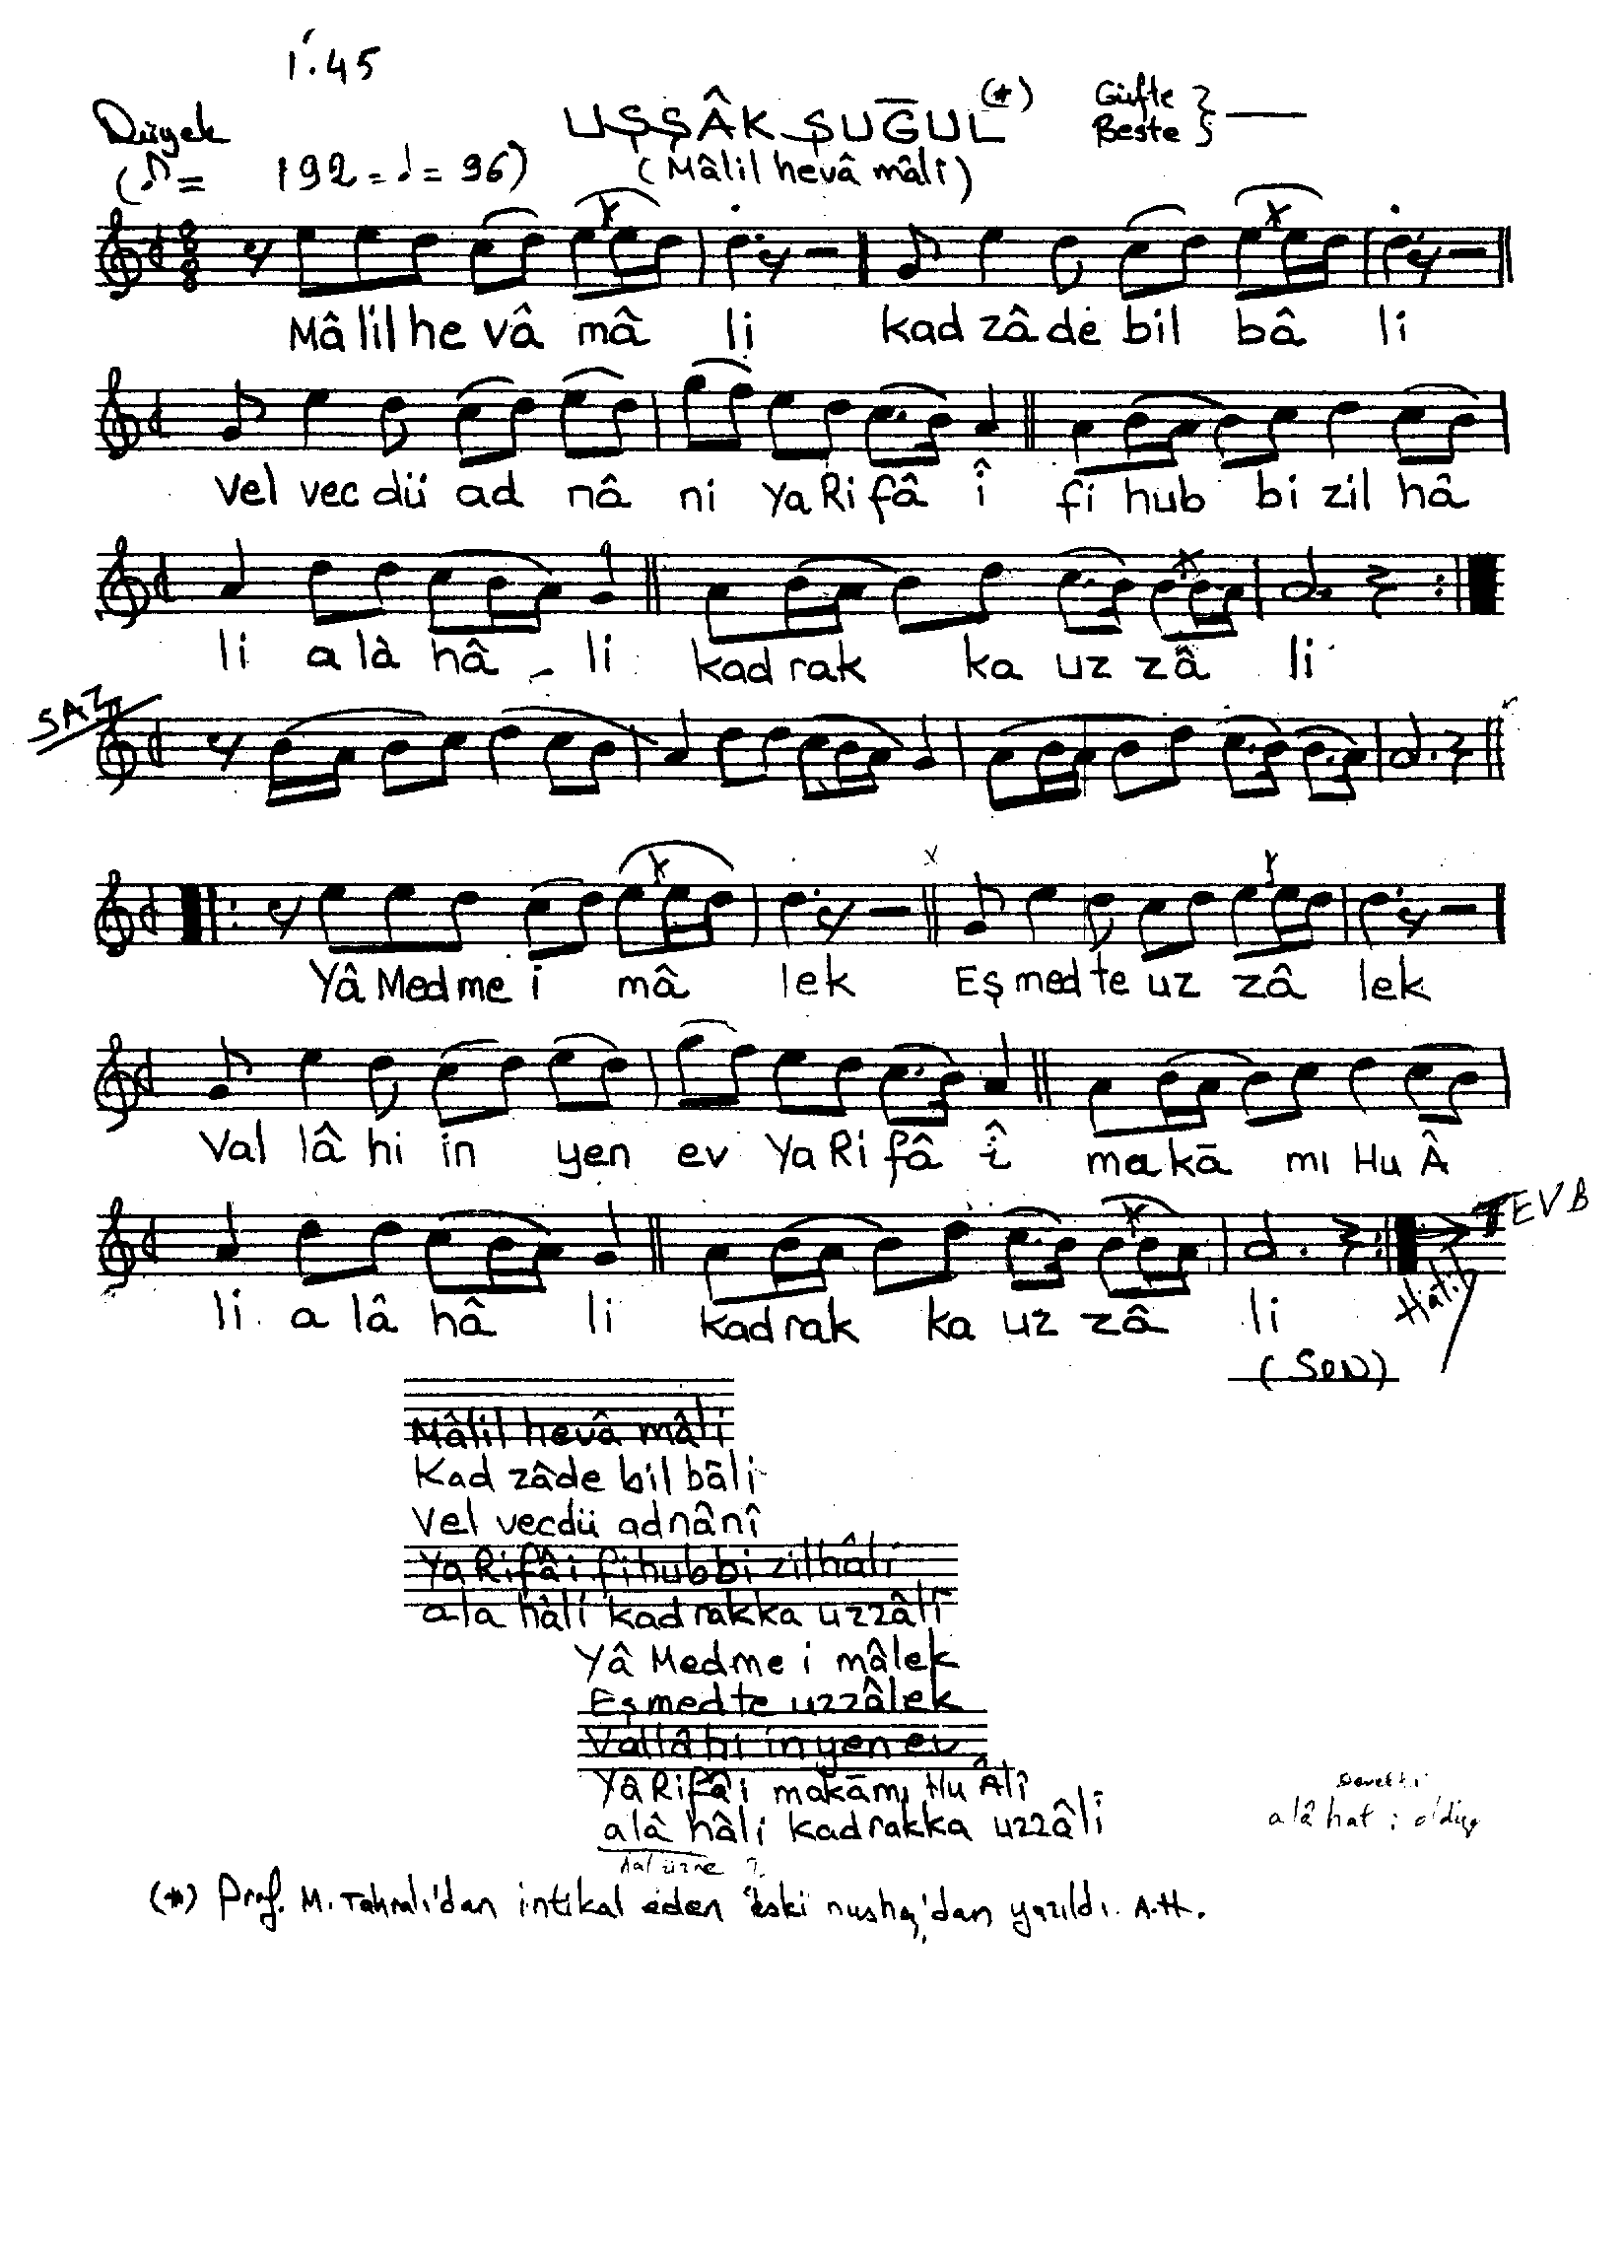 1'.45
Düyek UŞŞÂK ŞUĞUL (*) Güfte
Beste
(♪ = 192 = ♩ = 96) (Mâlil hevâ mâli)
Mâ lil he vâ mâ li kad zâ de bil bâ li
Vel vec dü ad nâ ni Ya Ri fâ î fi hub bi zil hâ
li a lâ hâ - li kad rak ka uz zâ li
SAZ
Yâ Med me i mâ lek Eş med te uz zâ lek
Val lâ hi in yen ev Ya Ri fâ î ma kā mı Hu Â
li a lâ hâ li kad rak ka uz zâ li
(SON)
Mâlil hevâ mâli
Kad zâde bil bâli
Vel vecdü adnânî
Ya Rifâi fi hubbi zil hâli
ala hâli kadrakka uzzâlî
Yâ Medme i mâlek
Eşmedte uzzâlek
Vallâhi in yen ev
Yâ Rifâi makāmı Hu Âlî
alâ hâli kadrakka uzzâlî
alâ hat
(*) Prof. M. Tahralı'dan intikal eden "eski nusha"dan yazıldı. A.H.